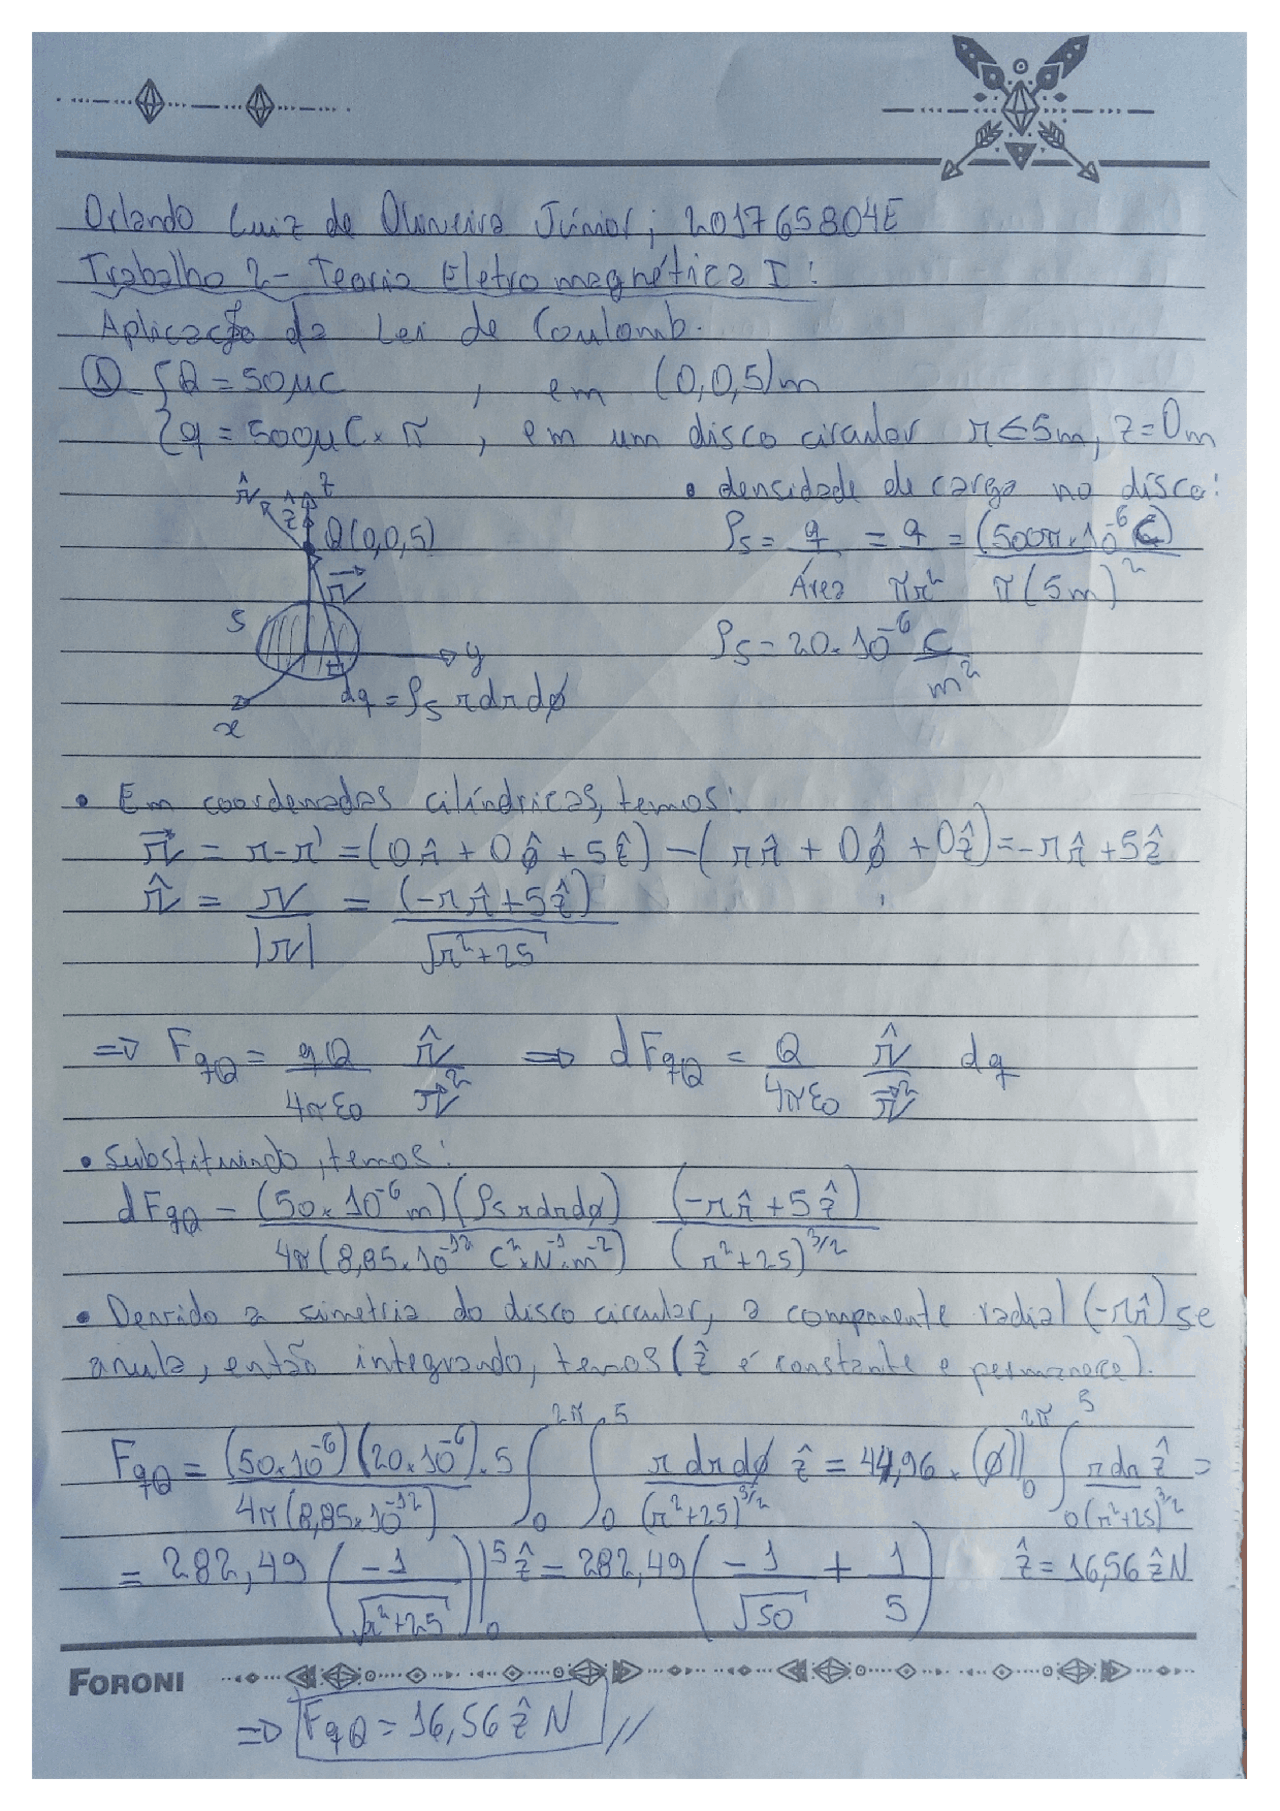 Orlando Luiz de Oliveira Júnior; 201765804E
Trabalho 2 - Teoria Eletromagnética I:
Aplicação da Lei de Coulomb.
① { Q = 50μC , em (0,0,5)m
{ q = 500μC × π , em um disco circular r ≤ 5m, z = 0m
r̂ ẑ z
• densidade de carga no disco:
Q(0,0,5)
ρs = q/Área = q/πr² = (500π×10⁻⁶ C)/π(5m)²
r⃗
S
y
ρs = 20×10⁻⁶ C/m²
dq = ρs r dr dø
x
• Em coordenadas cilíndricas, temos:
r⃗ = r - r' = (0r̂ + 0ø̂ + 5ẑ) - (rr̂ + 0ø̂ + 0ẑ) = -rr̂ + 5ẑ
r̂ = r/|r| = (-rr̂ + 5ẑ)/√(r² + 25)
⇒ FqQ = qQ/4πε0 r̂/r⃗² ⇒ dFqQ = Q/4πε0 r̂/r⃗² dq
• Substituindo, temos:
dFqQ = (50×10⁻⁶ m)(ρs r dr dø)/4π(8,85×10⁻¹² C²×N⁻¹×m⁻²) (-rr̂ + 5ẑ)/(r² + 25)^3/2
• Devido a simetria do disco circular, a componente radial (-rr̂) se
anula, então integrando, temos (ẑ é constante e permanece).
FqQ = (50×10⁻⁶)(20×10⁻⁶)/4π(8,85×10⁻¹²) . 5 ∫₀^2π ∫₀^5 r dr dø/(r² + 25)^3/2 ẑ = 44,96 × (ø)|₀^2π ∫₀^5 r dr/(r² + 25)^3/2 ẑ =
= 282,49 (-1/√(r² + 25))|₀^5 ẑ = 282,49 (-1/√50 + 1/5) ẑ = 16,56 ẑ N
FORONI
⇒ FqQ = 16,56 ẑ N //